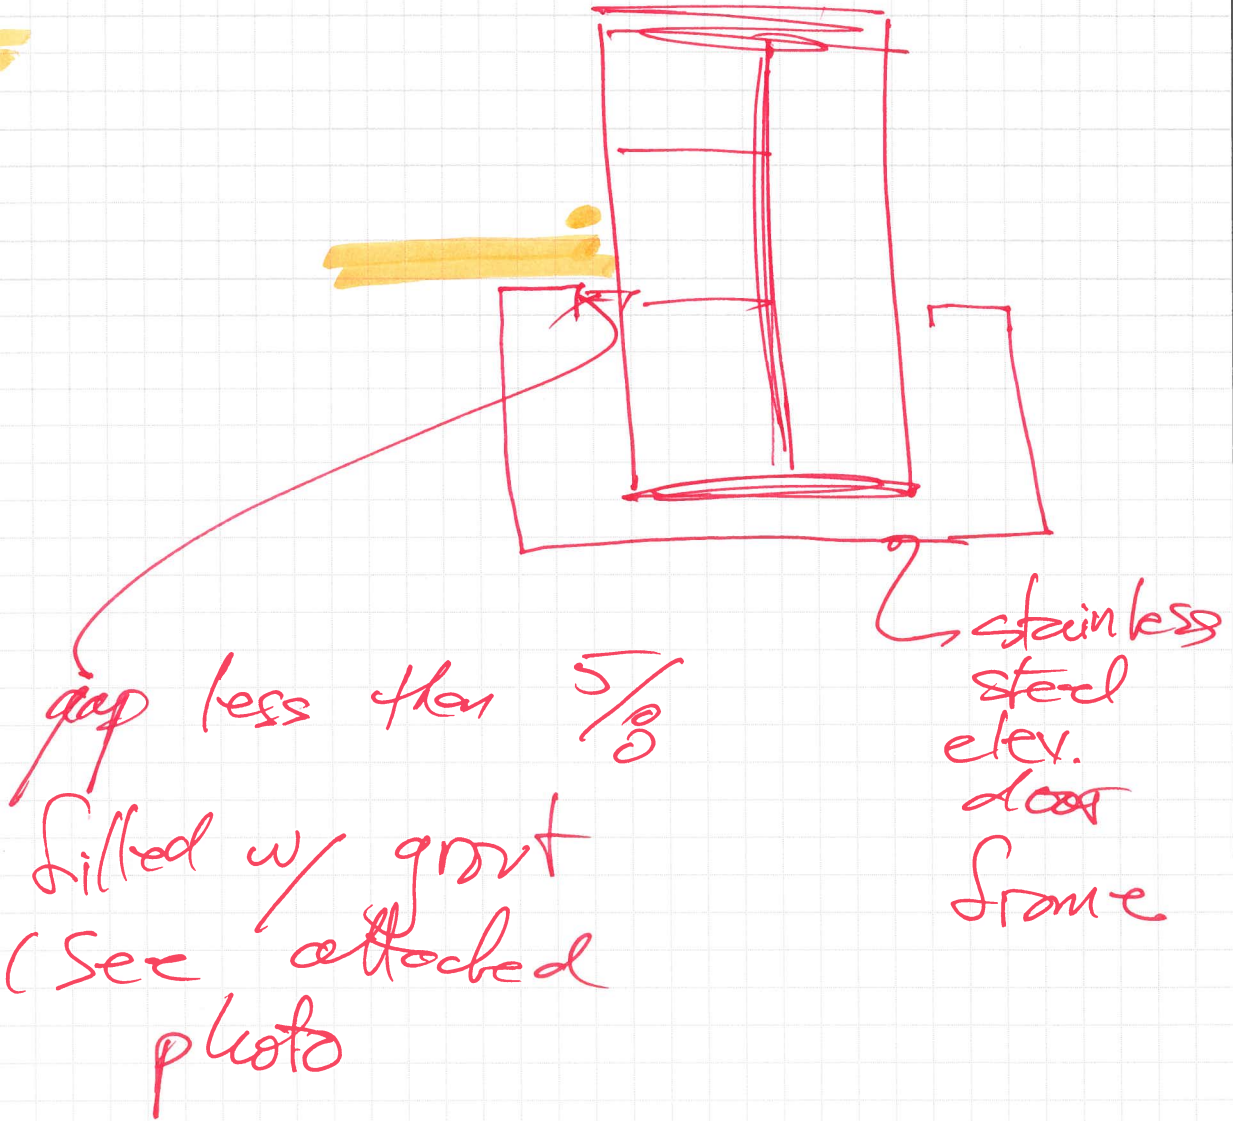 gap less than 5/8
filled w/ grout
(see attached
photo
stainless
steel
elev.
door
frame